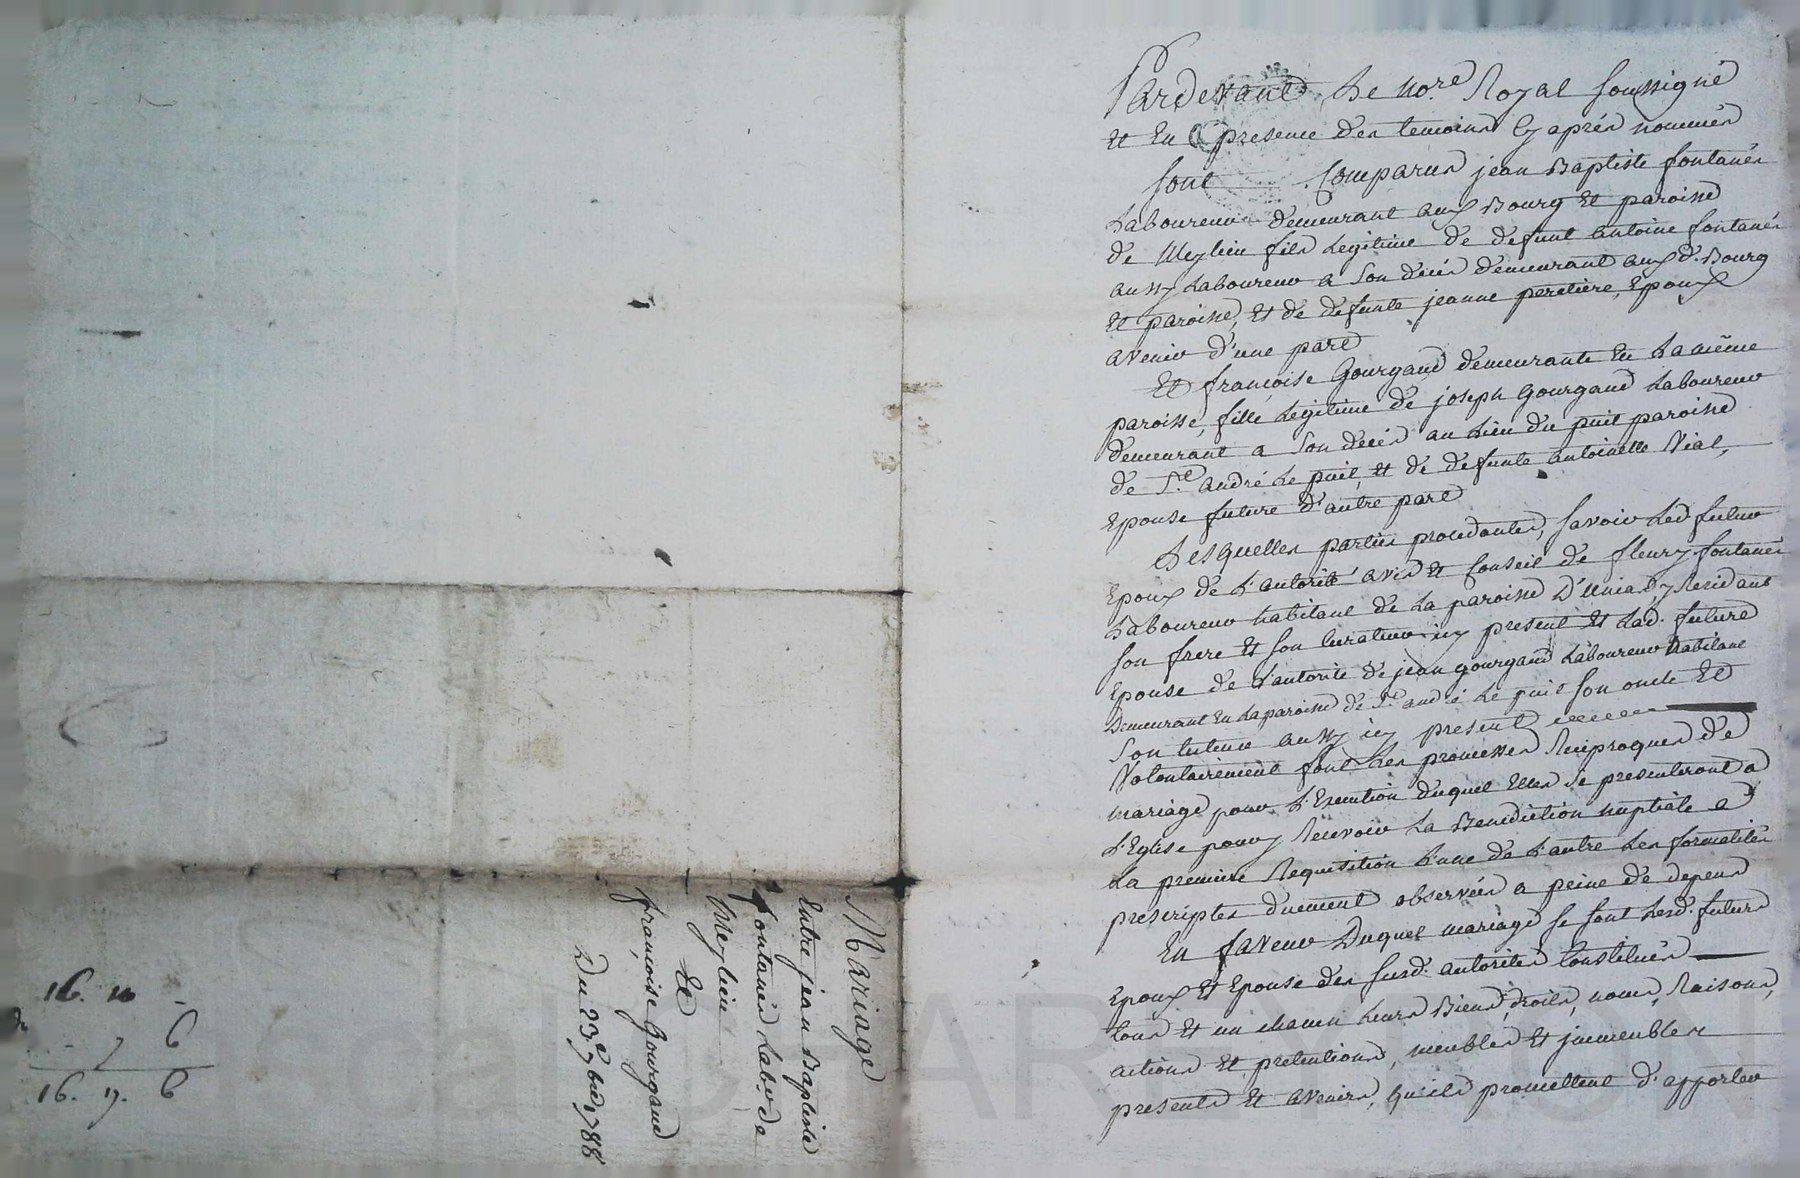 Mariage
Entre jean Baptiste
fontanés Labor de
Meylieu
Et
françoise Gourgaud
Du 23e 7bre 1788
16. 10
7 6
16. 17. 6
Pardevant Le nore. Royal soussigné
Et En presence des temoins Cy aprés nommés
sont Comparus jean Baptiste fontanés
Laboureur demeurant aux Bourg Et paroisse
de Meylieu fils Legitime de defunt antoine fontanés
aussy Laboureur a son decés demeurant aux d. Bourg
Et paroisse, Et de defunte jeanne peretiere, Epoux
avenir d'une part
Et françoise Gourgaud demeurante En La même
paroisse, fille Legitime de joseph Gourgaud Laboureur
demeurant a son decés au Lieu du puit paroisse
de St. andré Le puit, et de defunte antoinette Vial,
Epouse future d'autre part
Lesquelles parties procedantes, savoir Led. futur
Epoux de L'autorité avis Et Conseil de fleury fontanés
Laboureur habitant de La paroisse D'unias, y Residant
son frere Et son Curateur icy present Et Lad. future
Epouse de L'autorité de jean gourgaud Laboureur habitant
Demeurant En La paroisse de St. andré Le puit son oncle Et
son tuteur aussy icy present
Volontairement font Les promesses Reciproques de
mariage pour L'Execution duquel Elles se presenteront a
L'Eglise pour y Recevoir La Benediction nuptiale a
La premiere Requisition L'une de L'autre Les formalités
prescriptes duement observées a peine de depens
En faveur Duquel mariage se sont Lesd. futurs
Epoux Et Epouse des susd. autorités Constitués
tous Et un chacun Leurs Biens, droits, noms, Raisons,
actions Et pretentions, meubles Et jmmeubles
presents Et avenirs, qu'ils promettent d'apporter